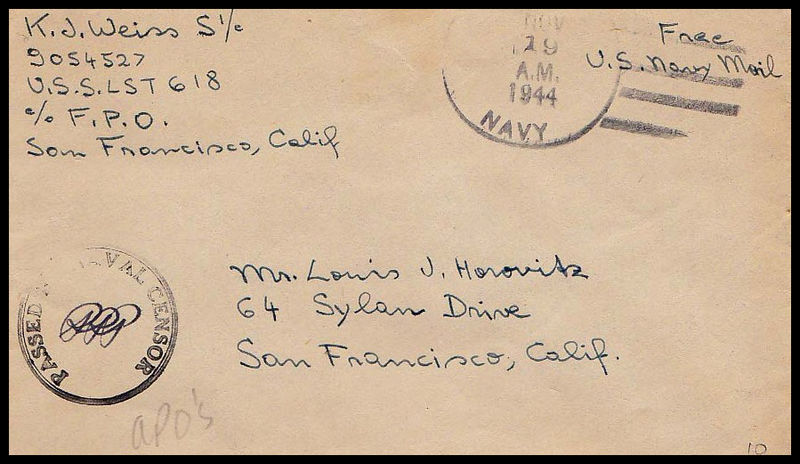 K.J. Weiss S 1/c
9054527
U.S.S. LST 618
c/o F.P.O.
San Francisco, Calif
NOV
19
A.M.
1944
NAVY
Free
U.S. Navy Mail
PASSED NAVAL CENSOR
Mr. Louis J. Horovitz
64 Sylan Drive
San Francisco, Calif.
APO's
10